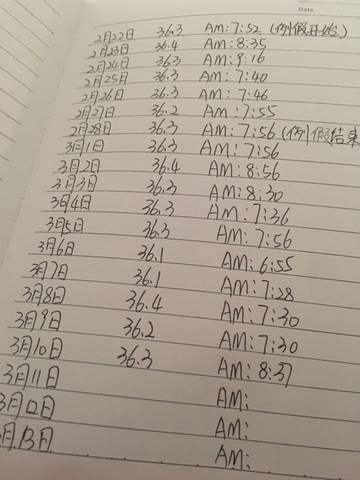 Date
2月22日 36.3 AM:7:52 (例假开始)
2月23日 36.4 AM:8:35
2月24日 36.3 AM:9:16
2月25日 36.3 AM:7:40
2月26日 36.3 AM:7:46
2月27日 36.2 AM:7:55
2月28日 36.3 AM:7:56 (例假结束
3月1日 36.3 AM:7:56
3月2日 36.4 AM:8:56
3月3日 36.3 AM:8:30
3月4日 36.3 AM:7:36
3月5日 36.3 AM:7:56
3月6日 36.1 AM:6:55
3月7日 36.1 AM:7:28
3月8日 36.4 AM:7:30
3月9日 36.2 AM:7:30
3月10日 36.3 AM:8:37
3月11日 AM:
3月12日 AM:
3月13日 AM: